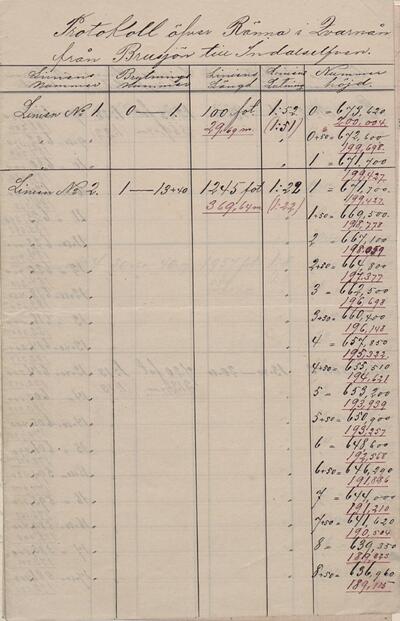 Protokoll öfver Ränna i Qvarnån
från Brusjön till Indalselfven.
Liniens Nummer Brytnings Nummer Liniens Längd Liniens Lutning Nummer höjd.
Linien No 1. 0 — 1. 100 fot 1:52 0 = 673,620
29,69 m (1:51) 200,004
" " 0+50 = 672,600
199,698
" " 1 = 671,700
199,427
Linien No 2. 1 — 13+40 1245 fot 1:22 1 = 671,700.
369,64 m (1:22) 199,427
" 1+50 = 669,500.
198,778
" 2 = 667,100
198,059
" 2+50 = 664,800
197,377
" 3 = 662,500
196,698
" 3+50 = 660,400
196,148
" 4 = 657,850
195,322
" 4+50 = 655,510
194,621
" 5 = 653,200
193,939
" 5+50 = 650,900
193,257
" 6 = 648,600
192,568
" 6+50 = 646,290
191,886
" 7 = 644,000
191,210
" 7+50 = 641,620
190,504
" 8 = 639,350
" 8+50 = 636,960